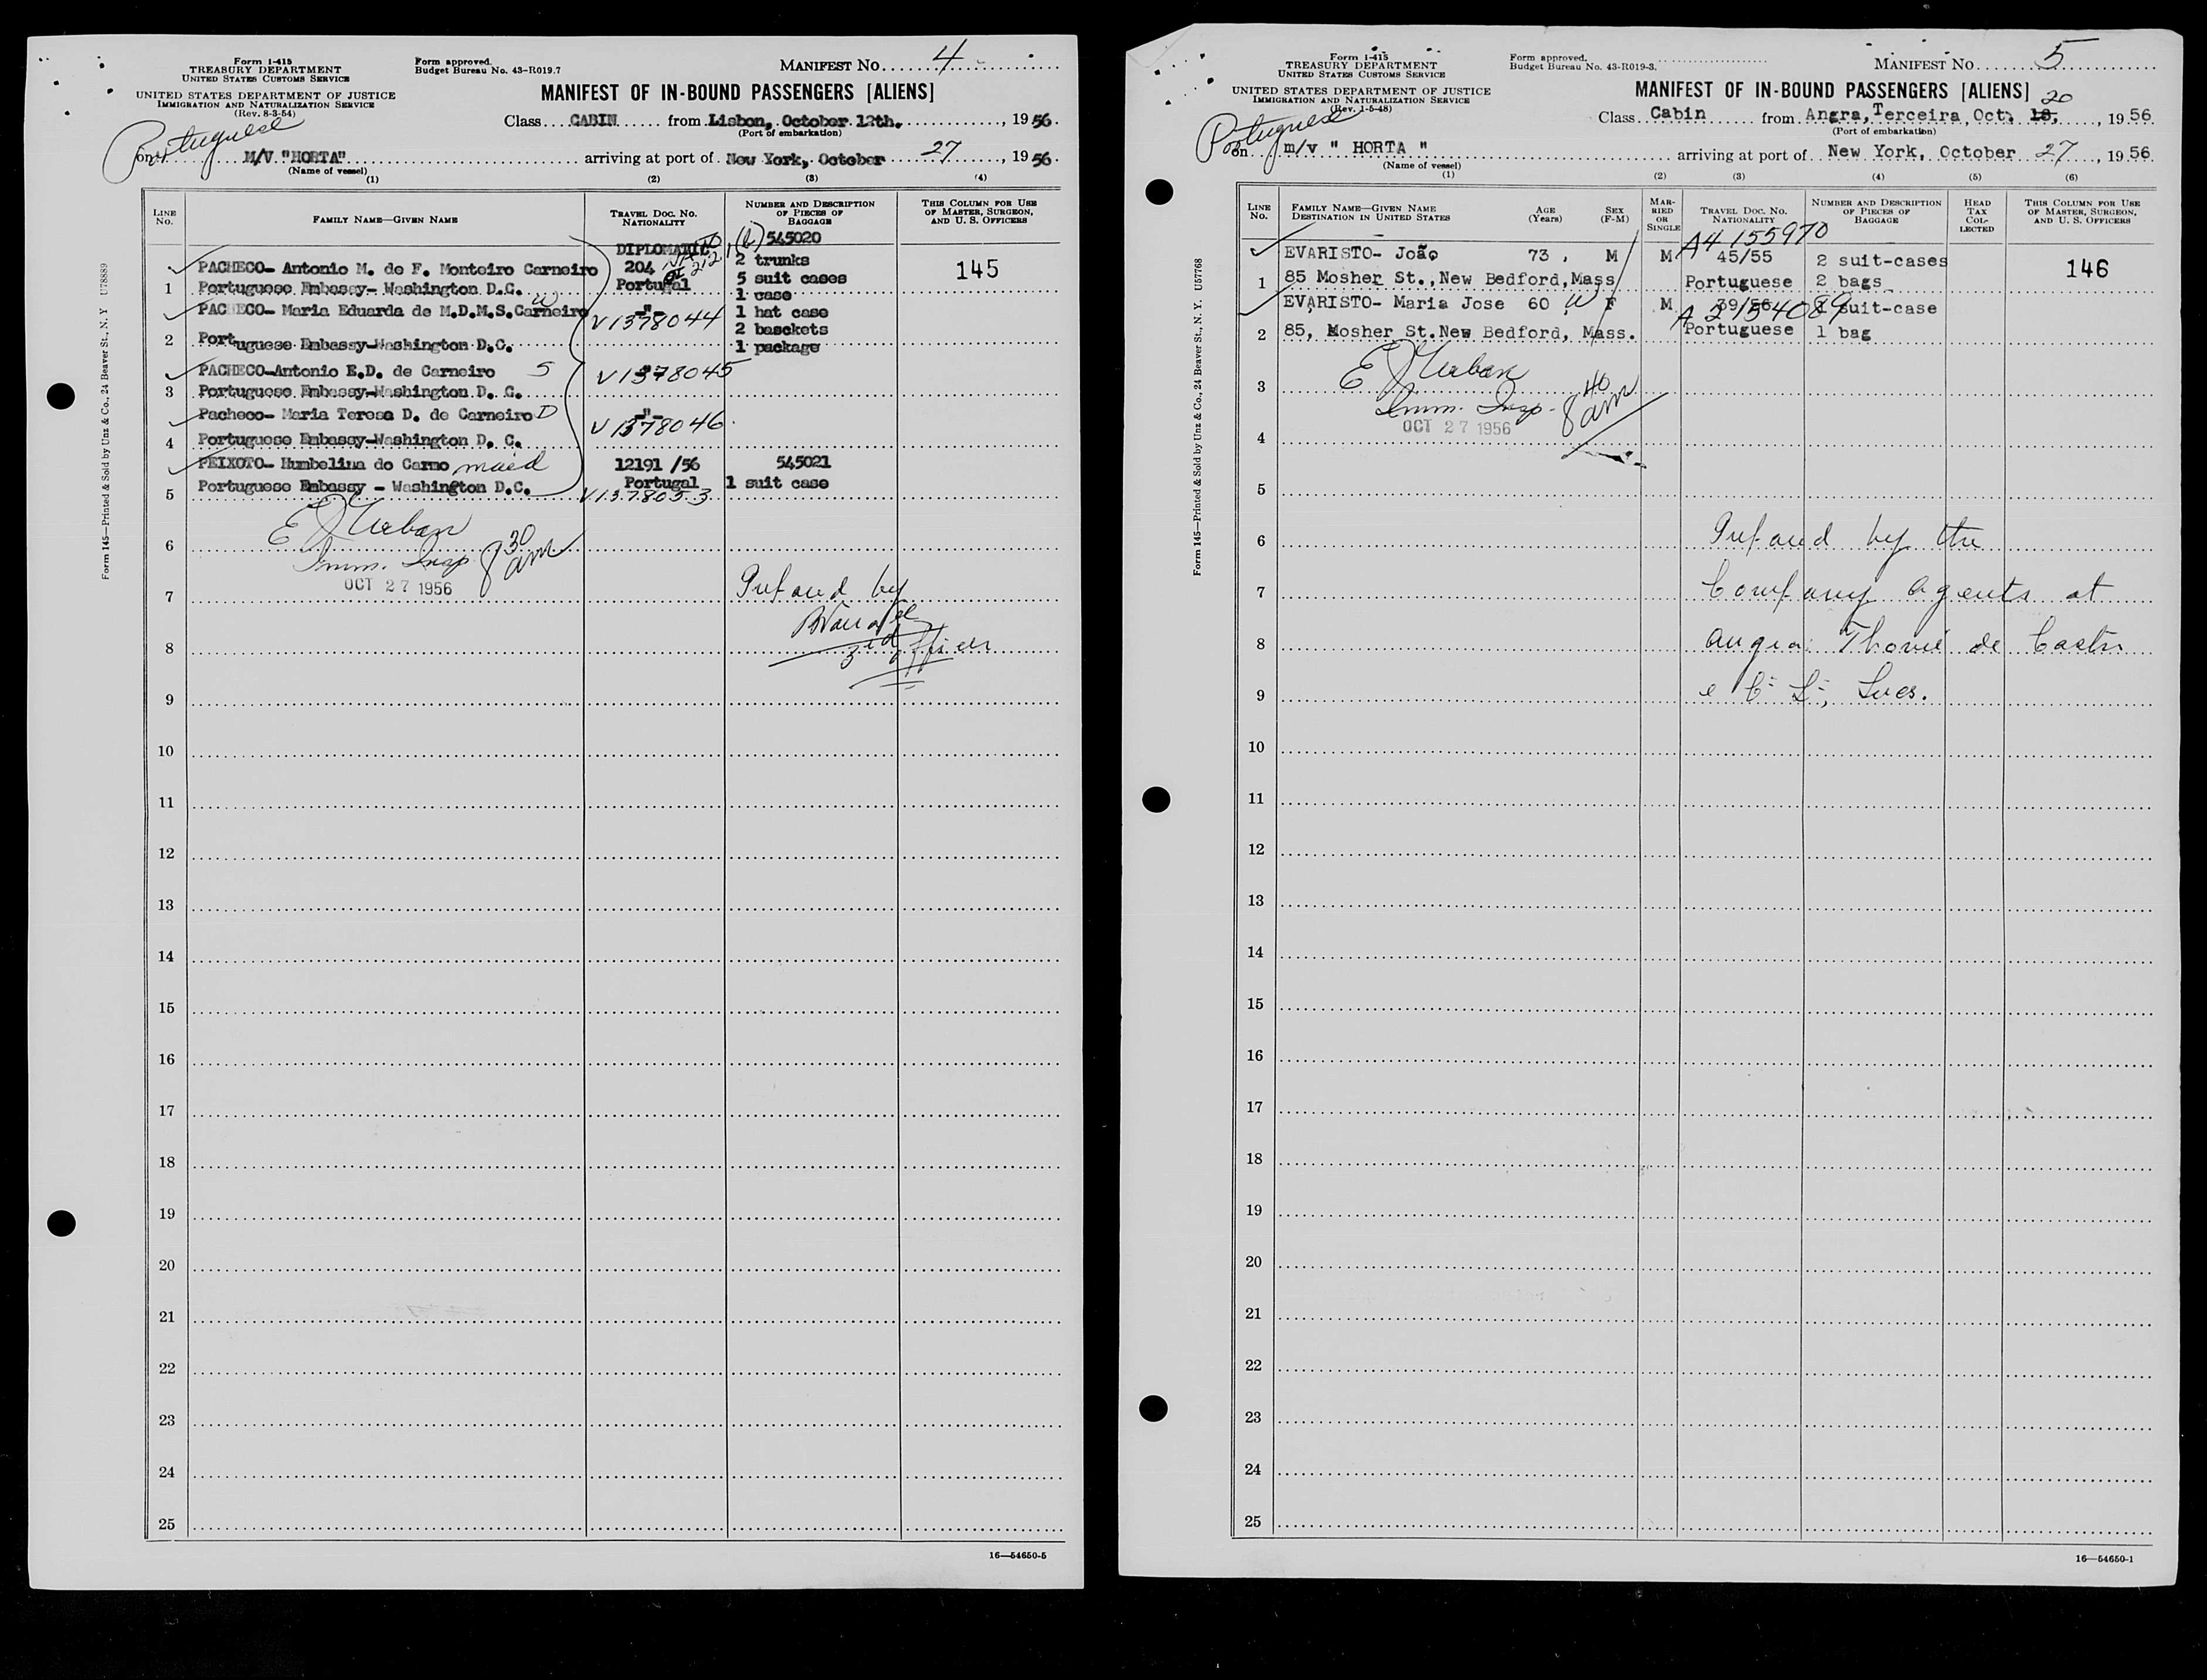 Form I-415
TREASURY DEPARTMENT
UNITED STATES CUSTOMS SERVICE
UNITED STATES DEPARTMENT OF JUSTICE
IMMIGRATION AND NATURALIZATION SERVICE
(Rev. 8-3-54)
Form approved.
Budget Bureau No. 43-R019.7
MANIFEST NO. 4
MANIFEST OF IN-BOUND PASSENGERS [ALIENS]
Class CABIN from Lisbon, October 12th. , 1956.
(Port of embarkation)
Portuguese
on M/V "HORTA" arriving at port of New York, October 27, 1956.
(Name of vessel)
(1) (2) (3) (4)
LINE NO.
FAMILY NAME—GIVEN NAME
TRAVEL DOC. NO. NATIONALITY
NUMBER AND DESCRIPTION OF PIECES OF BAGGAGE
THIS COLUMN FOR USE OF MASTER, SURGEON, AND U. S. OFFICERS
DIPLOMATIC 545020
PACHECO- Antonio M. de F. Monteiro Carneiro 204 2 trunks 145
1 Portuguese Embassy- Washington D.C. Portugal 5 suit cases
1 case
PACHECO- Maria Eduarda de M.D.M.S.Carneiro W -"- 1 hat case
V1378044
2 basckets
2 Portuguese Embassy-Washington D.C. 1 package
PACHECO-Antonio E.D. de Carneiro S V1378045
3 Portuguese Embassy-Washington D. C.
Pacheco- Maria Teresa D. de Carneiro D -"-
V1378046
4 Portuguese Embassy-Washington D. C.
PEIXOTO- Humbelina do Carmo maid 12191 /56 545021
5 Portuguese Embassy - Washington D.C. Portugal 1 suit case
V1378053
E J Urban
6 Imm. Insp. 8 30 am
OCT 27 1956
7 Prepared by
8 officer
9
10
11
12
13
14
15
16
17
18
19
20
21
22
23
24
25
16—54650-5
Form 145—Printed & Sold by Unz & Co., 24 Beaver St., N. Y. U78889
Form I-415
TREASURY DEPARTMENT
UNITED STATES CUSTOMS SERVICE
UNITED STATES DEPARTMENT OF JUSTICE
IMMIGRATION AND NATURALIZATION SERVICE
(Rev. 1-5-48)
Form approved.
Budget Bureau No. 43-R019-3.
MANIFEST NO. 5
MANIFEST OF IN-BOUND PASSENGERS [ALIENS]
20
Class Cabin from Angra, Terceira, Oct. 18, , 1956
(Port of embarkation)
Portuguese
on m/v " HORTA " arriving at port of New York, October 27, 1956
(Name of vessel)
(1) (2) (3) (4) (5) (6)
LINE NO.
FAMILY NAME—GIVEN NAME DESTINATION IN UNITED STATES
AGE (Years)
SEX (F-M)
MARRIED OR SINGLE
TRAVEL DOC. NO. NATIONALITY
NUMBER AND DESCRIPTION OF PIECES OF BAGGAGE
HEAD TAX COLLECTED
THIS COLUMN FOR USE OF MASTER, SURGEON, AND U. S. OFFICERS
A4 155970
EVARISTO- João 73 , M M 45/55 2 suit-cases 146
1 85 Mosher St.,New Bedford,Mass Portuguese 2 bags
EVARISTO- Maria Jose 60 W F M 39/56 1 suit-case
A 2154089
2 85, Mosher St.New Bedford, Mass. Portuguese 1 bag
3 E J Urban
Imm. Insp. 8 40 am
4 OCT 27 1956
5
6 Prepared by the
7 Company agents at
8 Angra: Thomé de Castro
9 e Cª Lª, Sucs.
10
11
12
13
14
15
16
17
18
19
20
21
22
23
24
25
16—54650-1
Form 145—Printed & Sold by Unz & Co., 24 Beaver St., N. Y. U57768